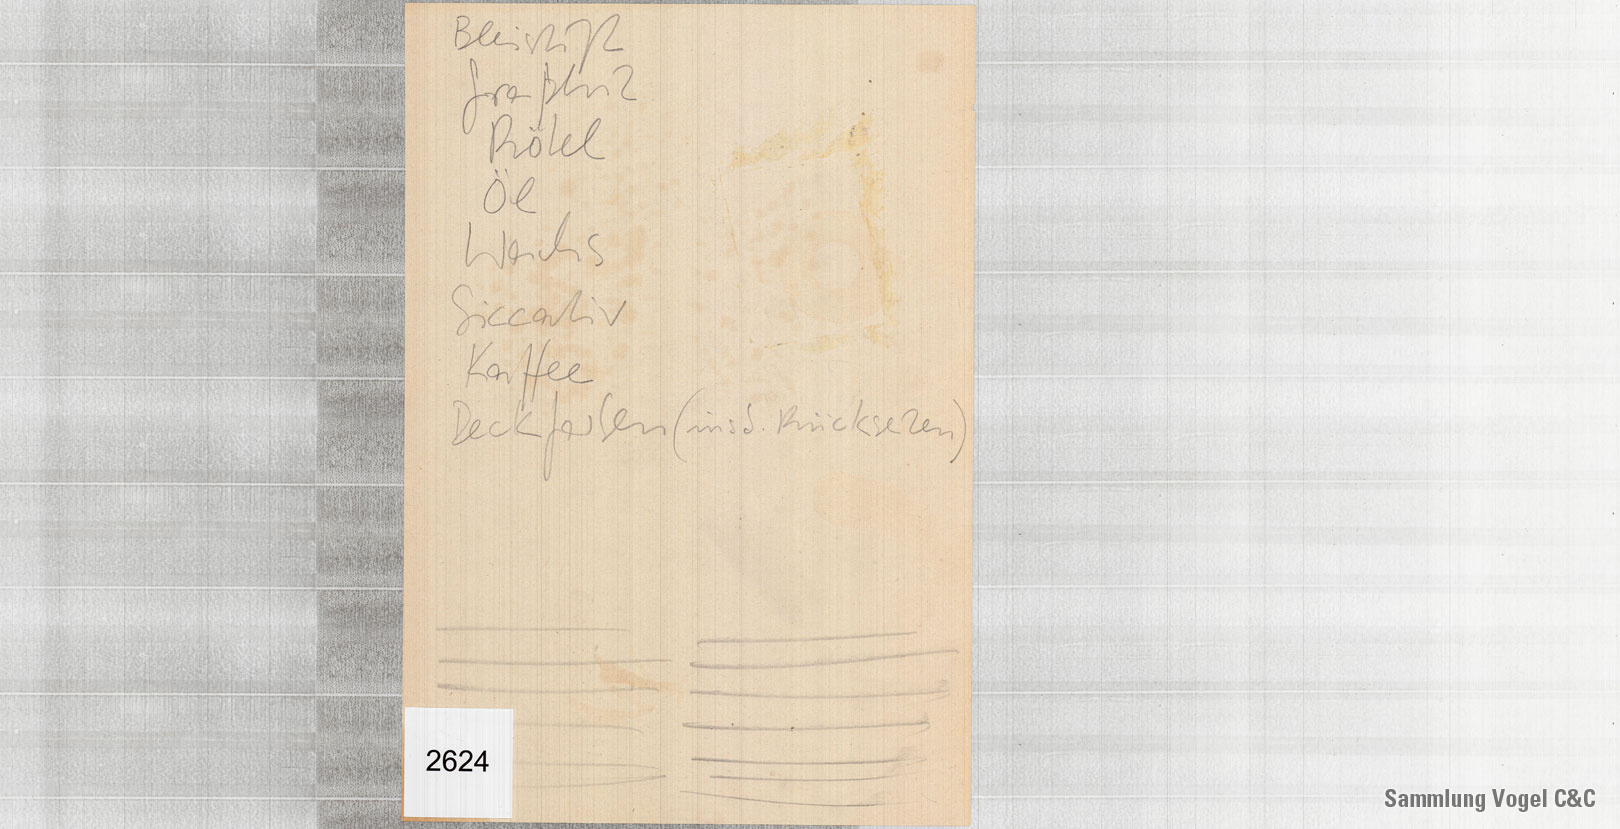 Bleistift
Graphit
Rötel
Öl
Wachs
Siccativ
Kaffee
Deckfarben (insb. Rückseiten)
2624
Sammlung Vogel C&C